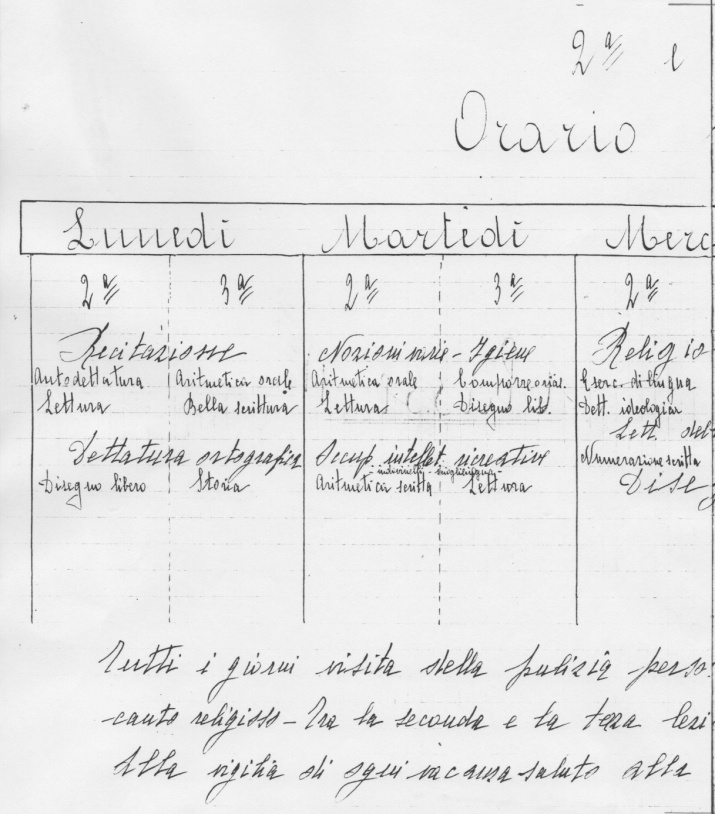 2ª e
Orario
Lunedì Martedì Merc
2ª 3ª 2ª 3ª 2ª
Recitazione Nozioni varie - Igiene Religio
Autodettatura Aritmetica orale Aritmetica orale Eserc. di lingua
Lettura Bella scrittura Lettura Disegno lib. Dett. ideologica
Lett. del
Dettatura ortografica Occup. intellet. ricreative Numerazione scritta
- indovinelli
Disegno libero Storia Aritmetica scritta Lettura Dise
Tutti i giorni visita della pulizia perso
canto religioso - Tra la seconda e la terza lezi
Alla vigilia di ogni vacanza saluto alla